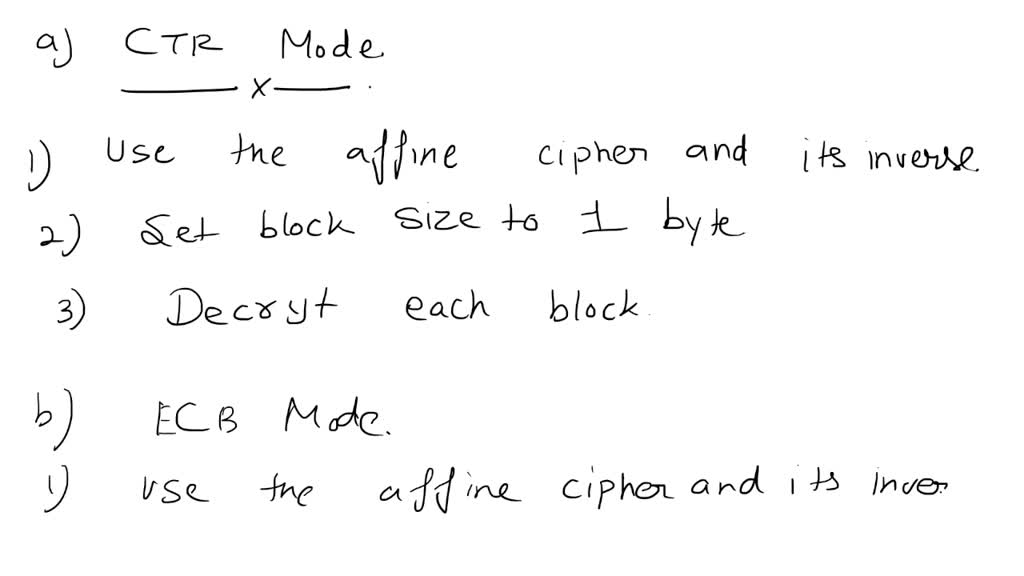 a) CTR Mode
x
1) Use the affine cipher and its inverse
2) Set block size to 1 byte
3) Decryt each block.
b) ECB Mode.
1) use the affine cipher and its inver